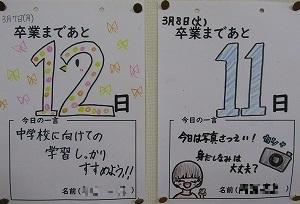 3月7日(月)
卒業まであと
12
日
今日の一言
中学校に向けての
学習しっかり
すすめよう!!
名前(
3月8日(火)
卒業まであと
11
日
今日の一言
今日は写真さつえい!
身だしなみは
大丈夫?
名前(